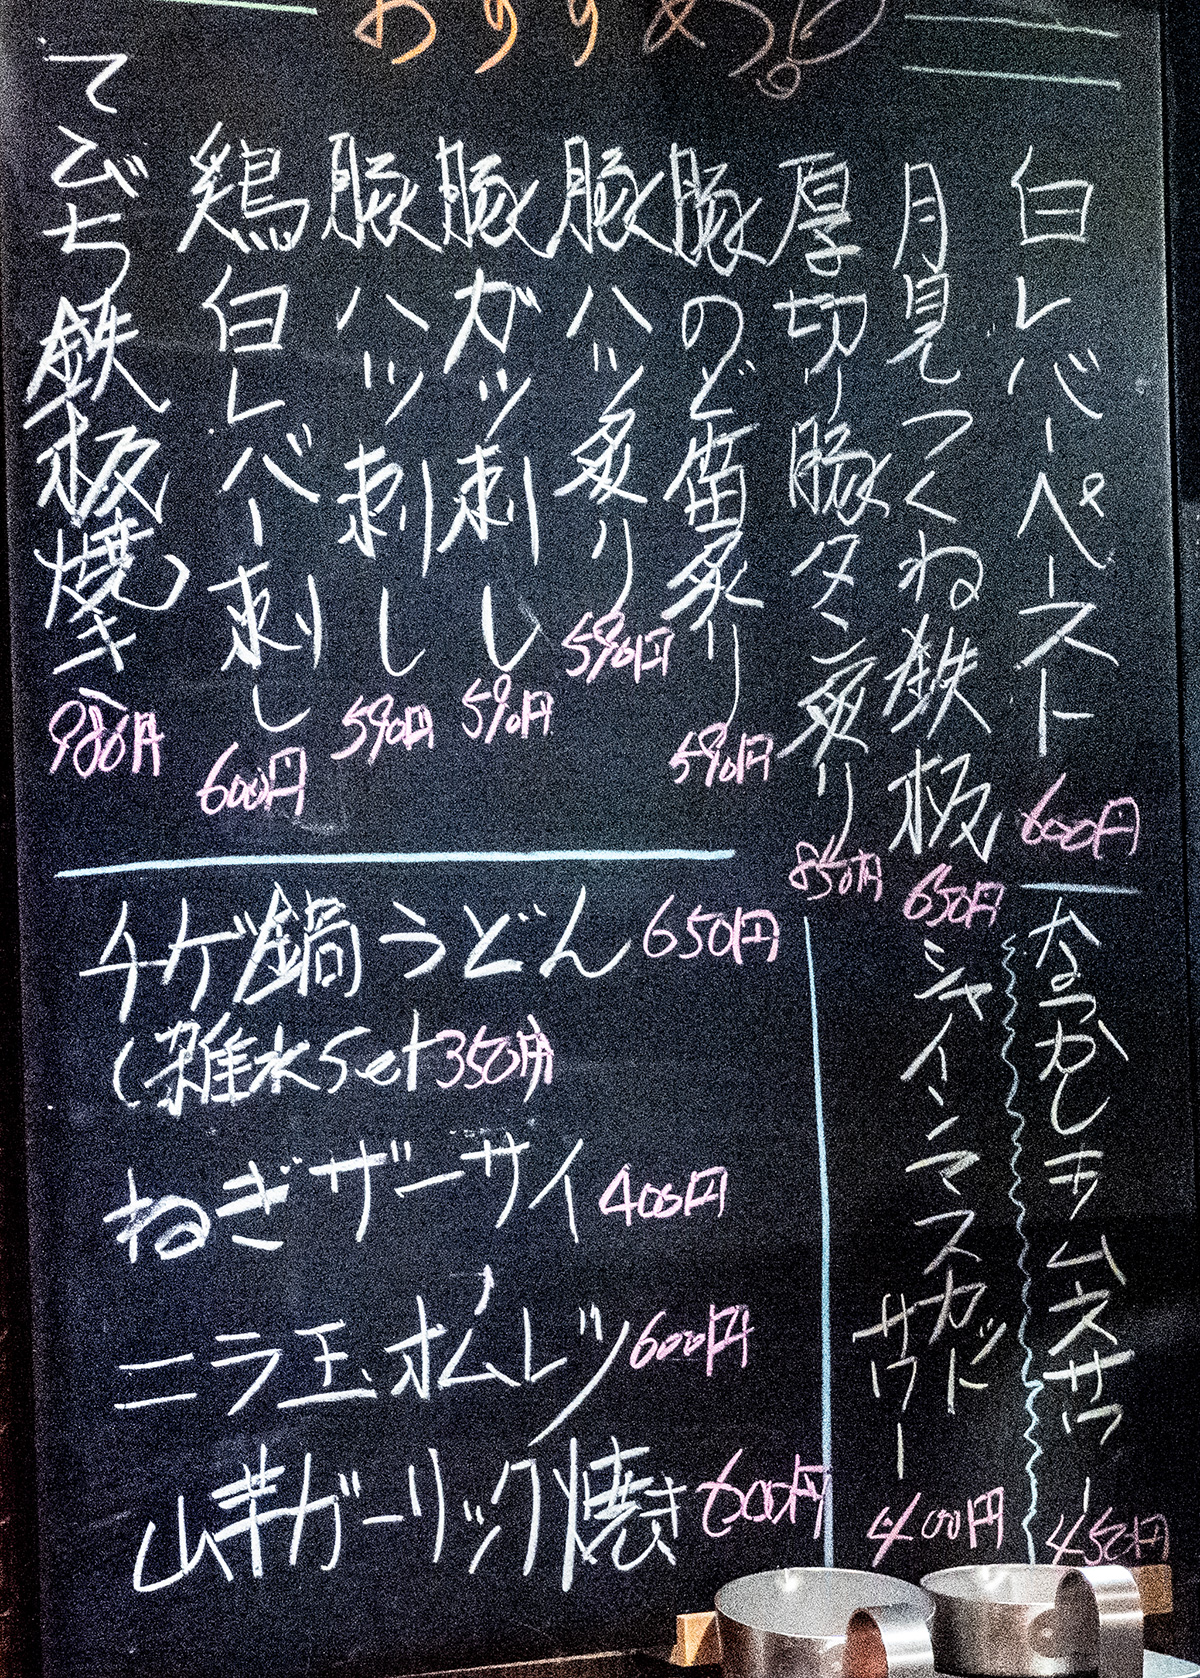 おすすめ
白レバーペースト 600円
月見つくね鉄板 650円
厚切り豚タン炙り 850円
豚のど笛炙り 590円
豚ハツ炙り 590円
豚ガツ刺し 590円
豚ハツ刺し 590円
鶏白レバー刺し 600円
てびち鉄板焼き 980円
なつかしキムスサワー 450円
シャインマスカットサワー 400円
チゲ鍋うどん 650円
(雑水set350円)
ねぎザーサイ 400円
ニラ玉オムレツ 600円
山芋ガーリック焼き 600円